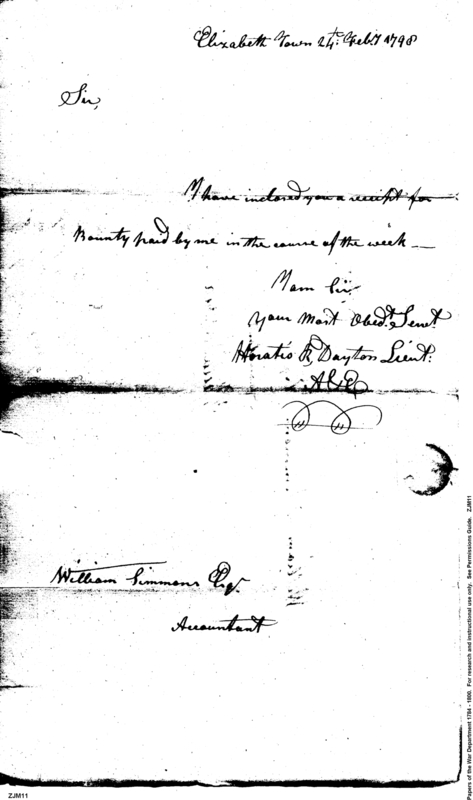 Elizabeth Town 24th. Feby 1798
Sir,
I have inclosed you a receipt for
Bounty paid by me in the course of the week —
I am Sir
Your Most Obedt. Servt
Horatio R. Dayton Lieut.
William Simmons Esqr.
Accountant
ZJM11
Papers of the War Department 1784 - 1800. For research and instructional use only. See Permissions Guide. ZJM11